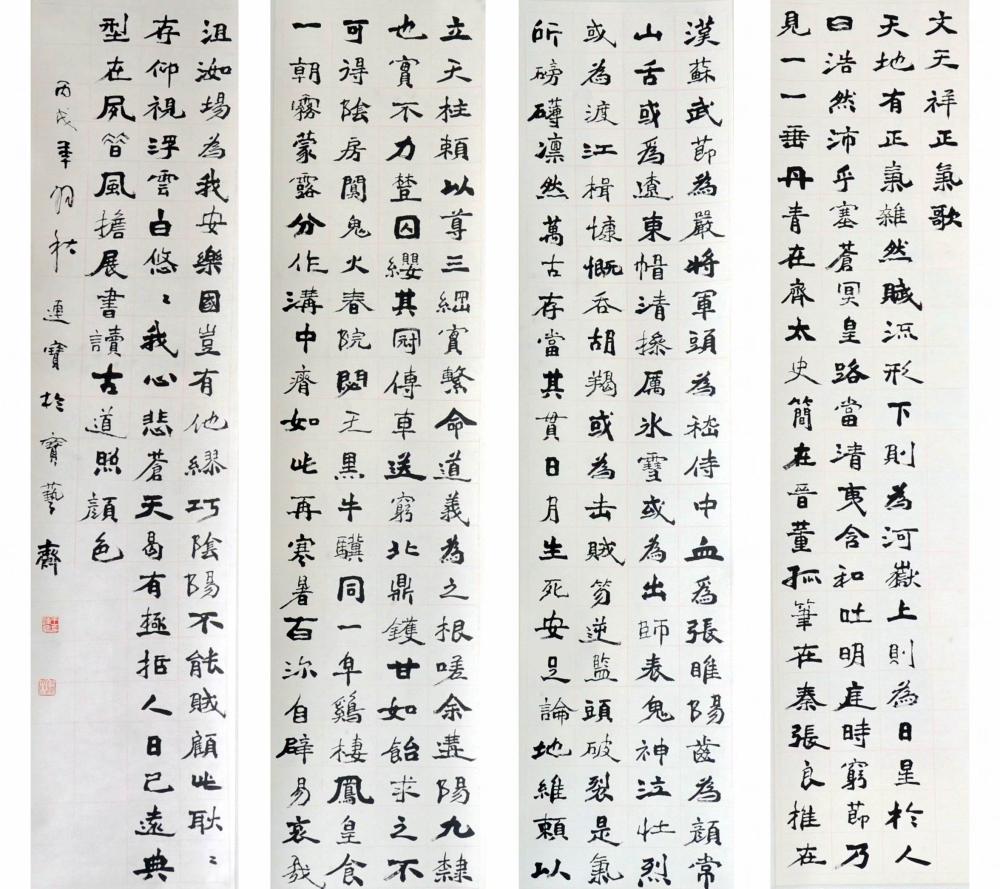 文天祥正氣歌
天地有正氣雜然賦流形下則為河嶽上則為日星於人
曰浩然沛乎塞蒼冥皇路當清夷含和吐明庭時窮節乃
見一一垂丹青在齊太史簡在晉董狐筆在秦張良椎在
漢蘇武節為嚴將軍頭為嵇侍中血為張睢陽齒為顏常
山舌或為遼東帽清操厲冰雪或為出師表鬼神泣壯烈
或為渡江楫慷慨吞胡羯或為击賊笏逆豎頭破裂是氣
所磅礴凜然萬古存當其貫日月生死安足論地維賴以
立天柱賴以尊三綱實繫命道義為之根嗟余遘陽九隸
也實不力楚囚纓其冠傳車送窮北鼎鑊甘如飴求之不
可得陰房闃鬼火春院閟天黑牛驥同一皁鷄棲鳳皇食
一朝霧蒙露分作溝中瘠如此再寒暑百沴自辟易哀哉
沮洳場為我安樂國豈有他繆巧陰陽不能賊顧此耿〻
存仰視浮雲白悠〻我心悲蒼天曷有極哲人日已遠典
型在夙昔風檐展書讀古道照顏色
丙戌年初秋連寶於寶藝齋